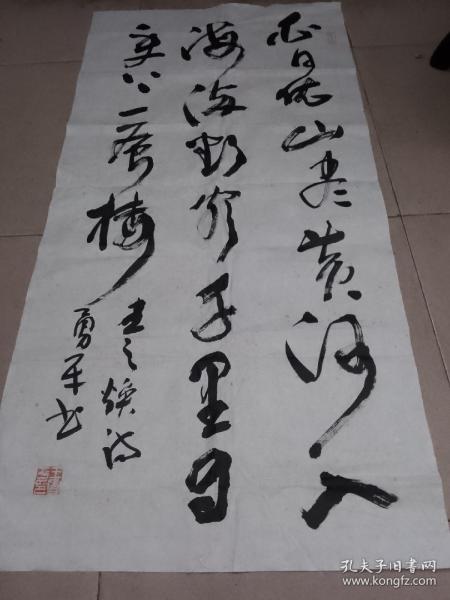 白日依山尽黄河入
海流欲穷千里目
更上一层楼
王之焕诗
勇平书
孔夫子旧书网
www.kongfz.com